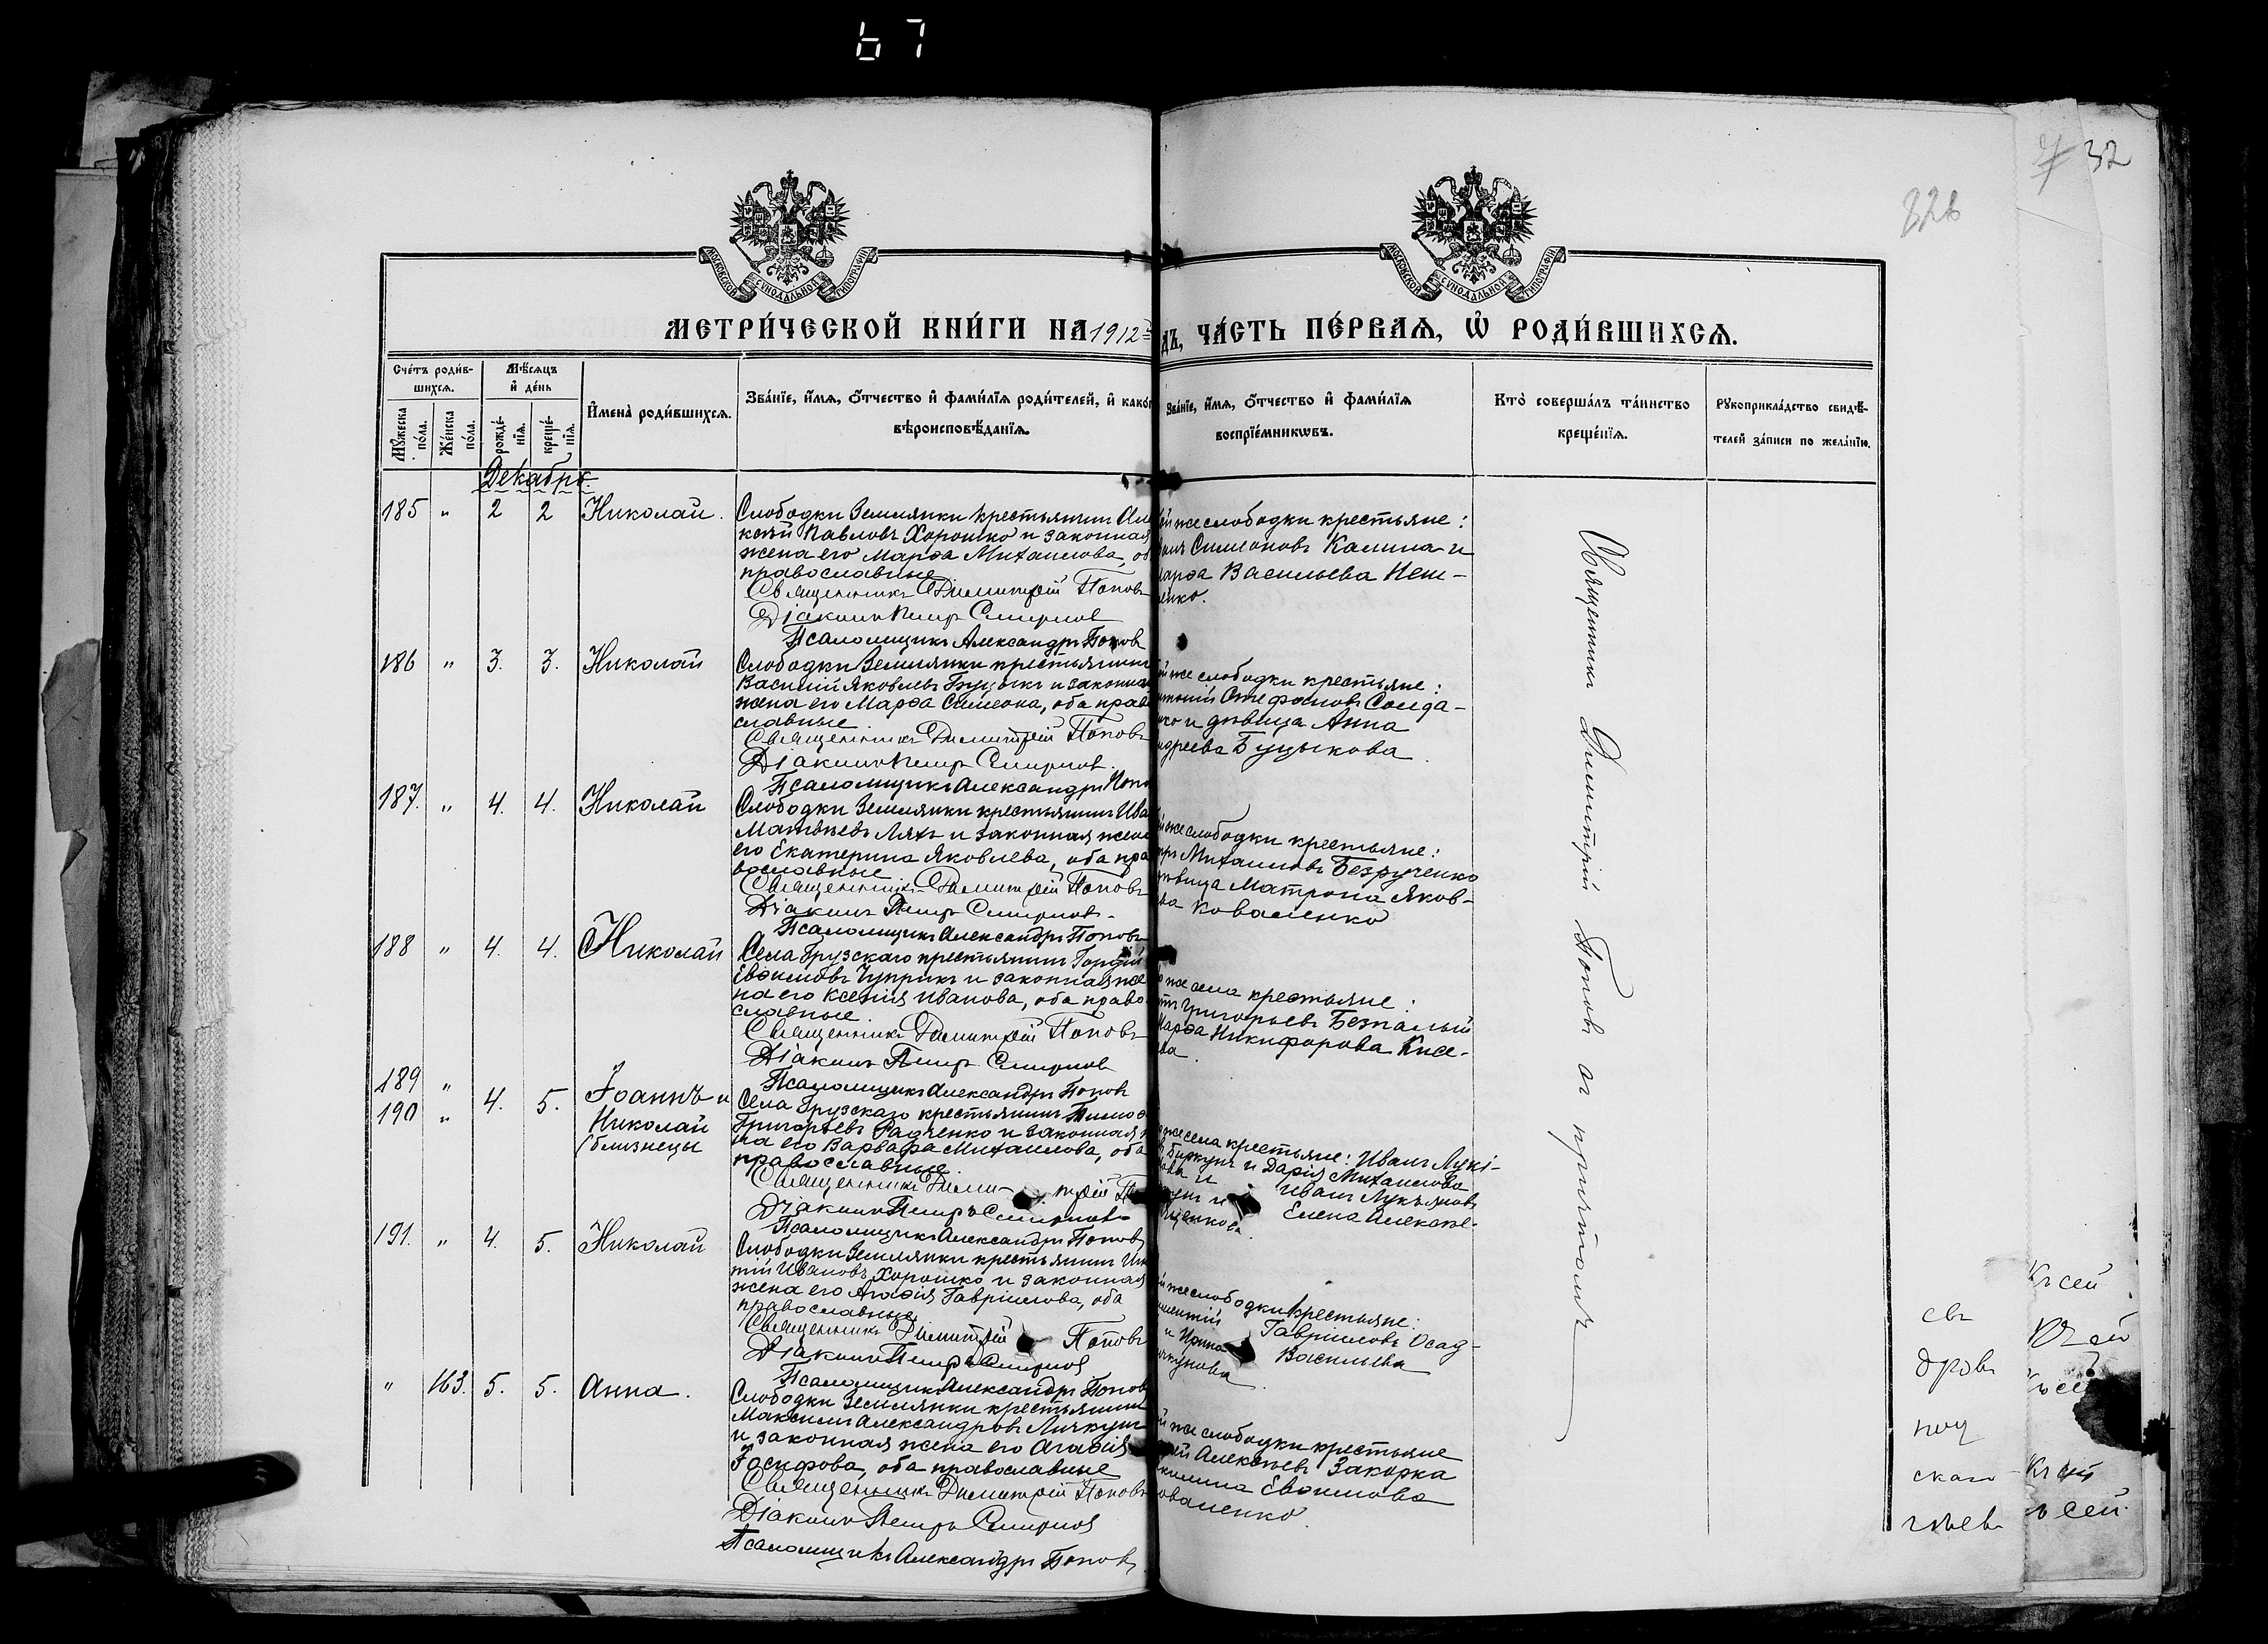 67
32
326
МОСКОВСКОЙ СѴНОДАЛЬНОЙ ТИПОГРАФІИ
МОСКОВСКОЙ СѴНОДАЛЬНОЙ ТИПОГРАФІИ
МЕТРИ́ЧЕСКОЙ КНИ́ГИ НА 1912
ДЪ, ЧА́СТЬ ПЕ́РВАѦ, Ѡ РОДИ́ВШИХСѦ.
Сче́тъ роди́в-
шихсѧ.
Мѣ́сѧцъ
и де́нь
Мꙋ́жеска
по́ла.
Же́нска
по́ла.
рожде́-
нїѧ.
креще́-
нїѧ.
И҆мена̀ роди́вшихсѧ.
Зва́нїе, и҆́мѧ, ѻ҆́тчество и҆ фами́лїѧ роди́телей, и҆ како́г
вѣроисповѣ́данїѧ.
Зва́нїе, и҆́мѧ, ѻ҆́тчество и҆ фами́лїѧ
воспрїе́мникѡвъ.
Кто̀ соверша́лъ та́инство
креще́нїѧ.
Рꙋкоприкла́дство свидѣ́-
телей за́писи по жела́нїю.
Декабрь.
185 " 2 2 Николай.
Слободки Землянки крестьянинъ Але
кс​ѣй Павловъ Хорошко и законная
жена его Марѳа Михаилова, об
православные
Священникъ Димитрій Поповъ
Діаконъ Петръ Смирнов
Псаломщикъ Александръ Попов
й же слободки крестьяне:
Симеоновъ Калина и
арѳа Васильева Неш-
енко.
186 " 3. 3. Николай
Слободки Землянки крестьянинъ
Василій Яковлевъ Буцыкъ и законна
жена его Марѳа Симеона, оба прав
славные.
Священникъ Димитрій Поповъ
Діаконъ Петръ Смирнов.
Псаломщикъ Александръ Попо
й же слободки крестьяне:
Стефановъ Солда-
ко и дѣвица Анна
ндреева Буцыкова.
187. " 4. 4. Николай
Слободки Землянки крестьянинъ Ива
Матвѣевъ Ляхъ и законная жена
его Екатерина Яковлева, оба пра
вославные
Священникъ Димитрій Поповъ
Діаконъ Петръ Смирновъ
Псаломщикъ Александръ Поповъ
й же слободки крестьяне:
тръ Михаиловъ Безрученко
ѣвица Матрона Яков-
ва Коваленко
188 " 4. 4. Николай
Села Грузскаго крестьянинъ Гордій
Евѳимовъ Чуприкъ и законная же
на его Ксенія Иванова, оба право
славные.
Священникъ Димитрій Поповъ
Діаконъ Петръ Смирнов
Псаломщикъ Александръ Попов
о же села крестьяне:
Григорьевъ Безпалый
Марѳа Никифорова Кисе-
ва.
189 "
190 " 4. 5. Іоаннъ и
Николай
(близнецы
Села Грузскаго крестьянинъ Тимоѳ
Григорьевъ Радченко и законная
на его Варвара Михаилова, оба
православные.
Священникъ Дими- трій П
Діаконъ Петръ Смирновъ
Псаломщикъ Александръ Попов
же села крестьяне: Иванъ Лукі-
и Дарія Михаилова
Иванъ Лукьяновъ
Елена Алексѣе-
191. " 4. 5. Николай
Слободки Землянки крестьянинъ Иг
тій Ивановъ Хорошко и законная
жена его Агаѳія Гавріилова, оба
православные.
Священникъ Димитрій Поповъ
Діаконъ Петръ Смирнов
Псаломщикъ Александръ Попов
й же слободки крестьяне:
Гавріиловъ Осад-
и Ирина Васильева
" 163. 5. 5. Анна.
Слободки Землянки крестьянинъ
Максимъ Александровъ Личкунъ
и законная жена его Агаѳія
Іосифова, оба православные
Священникъ Димитрій Поповъ
Діаконъ Петръ Смирнов
Псаломщикъ Александръ Попов
й же слободки крестьяне
ей Алексѣевъ Закорка
Евѳимова
оваленко.
Священникъ Димитрій Поповъ съ причтомъ
Къ сей
скаго
Къ сей
ъ сей